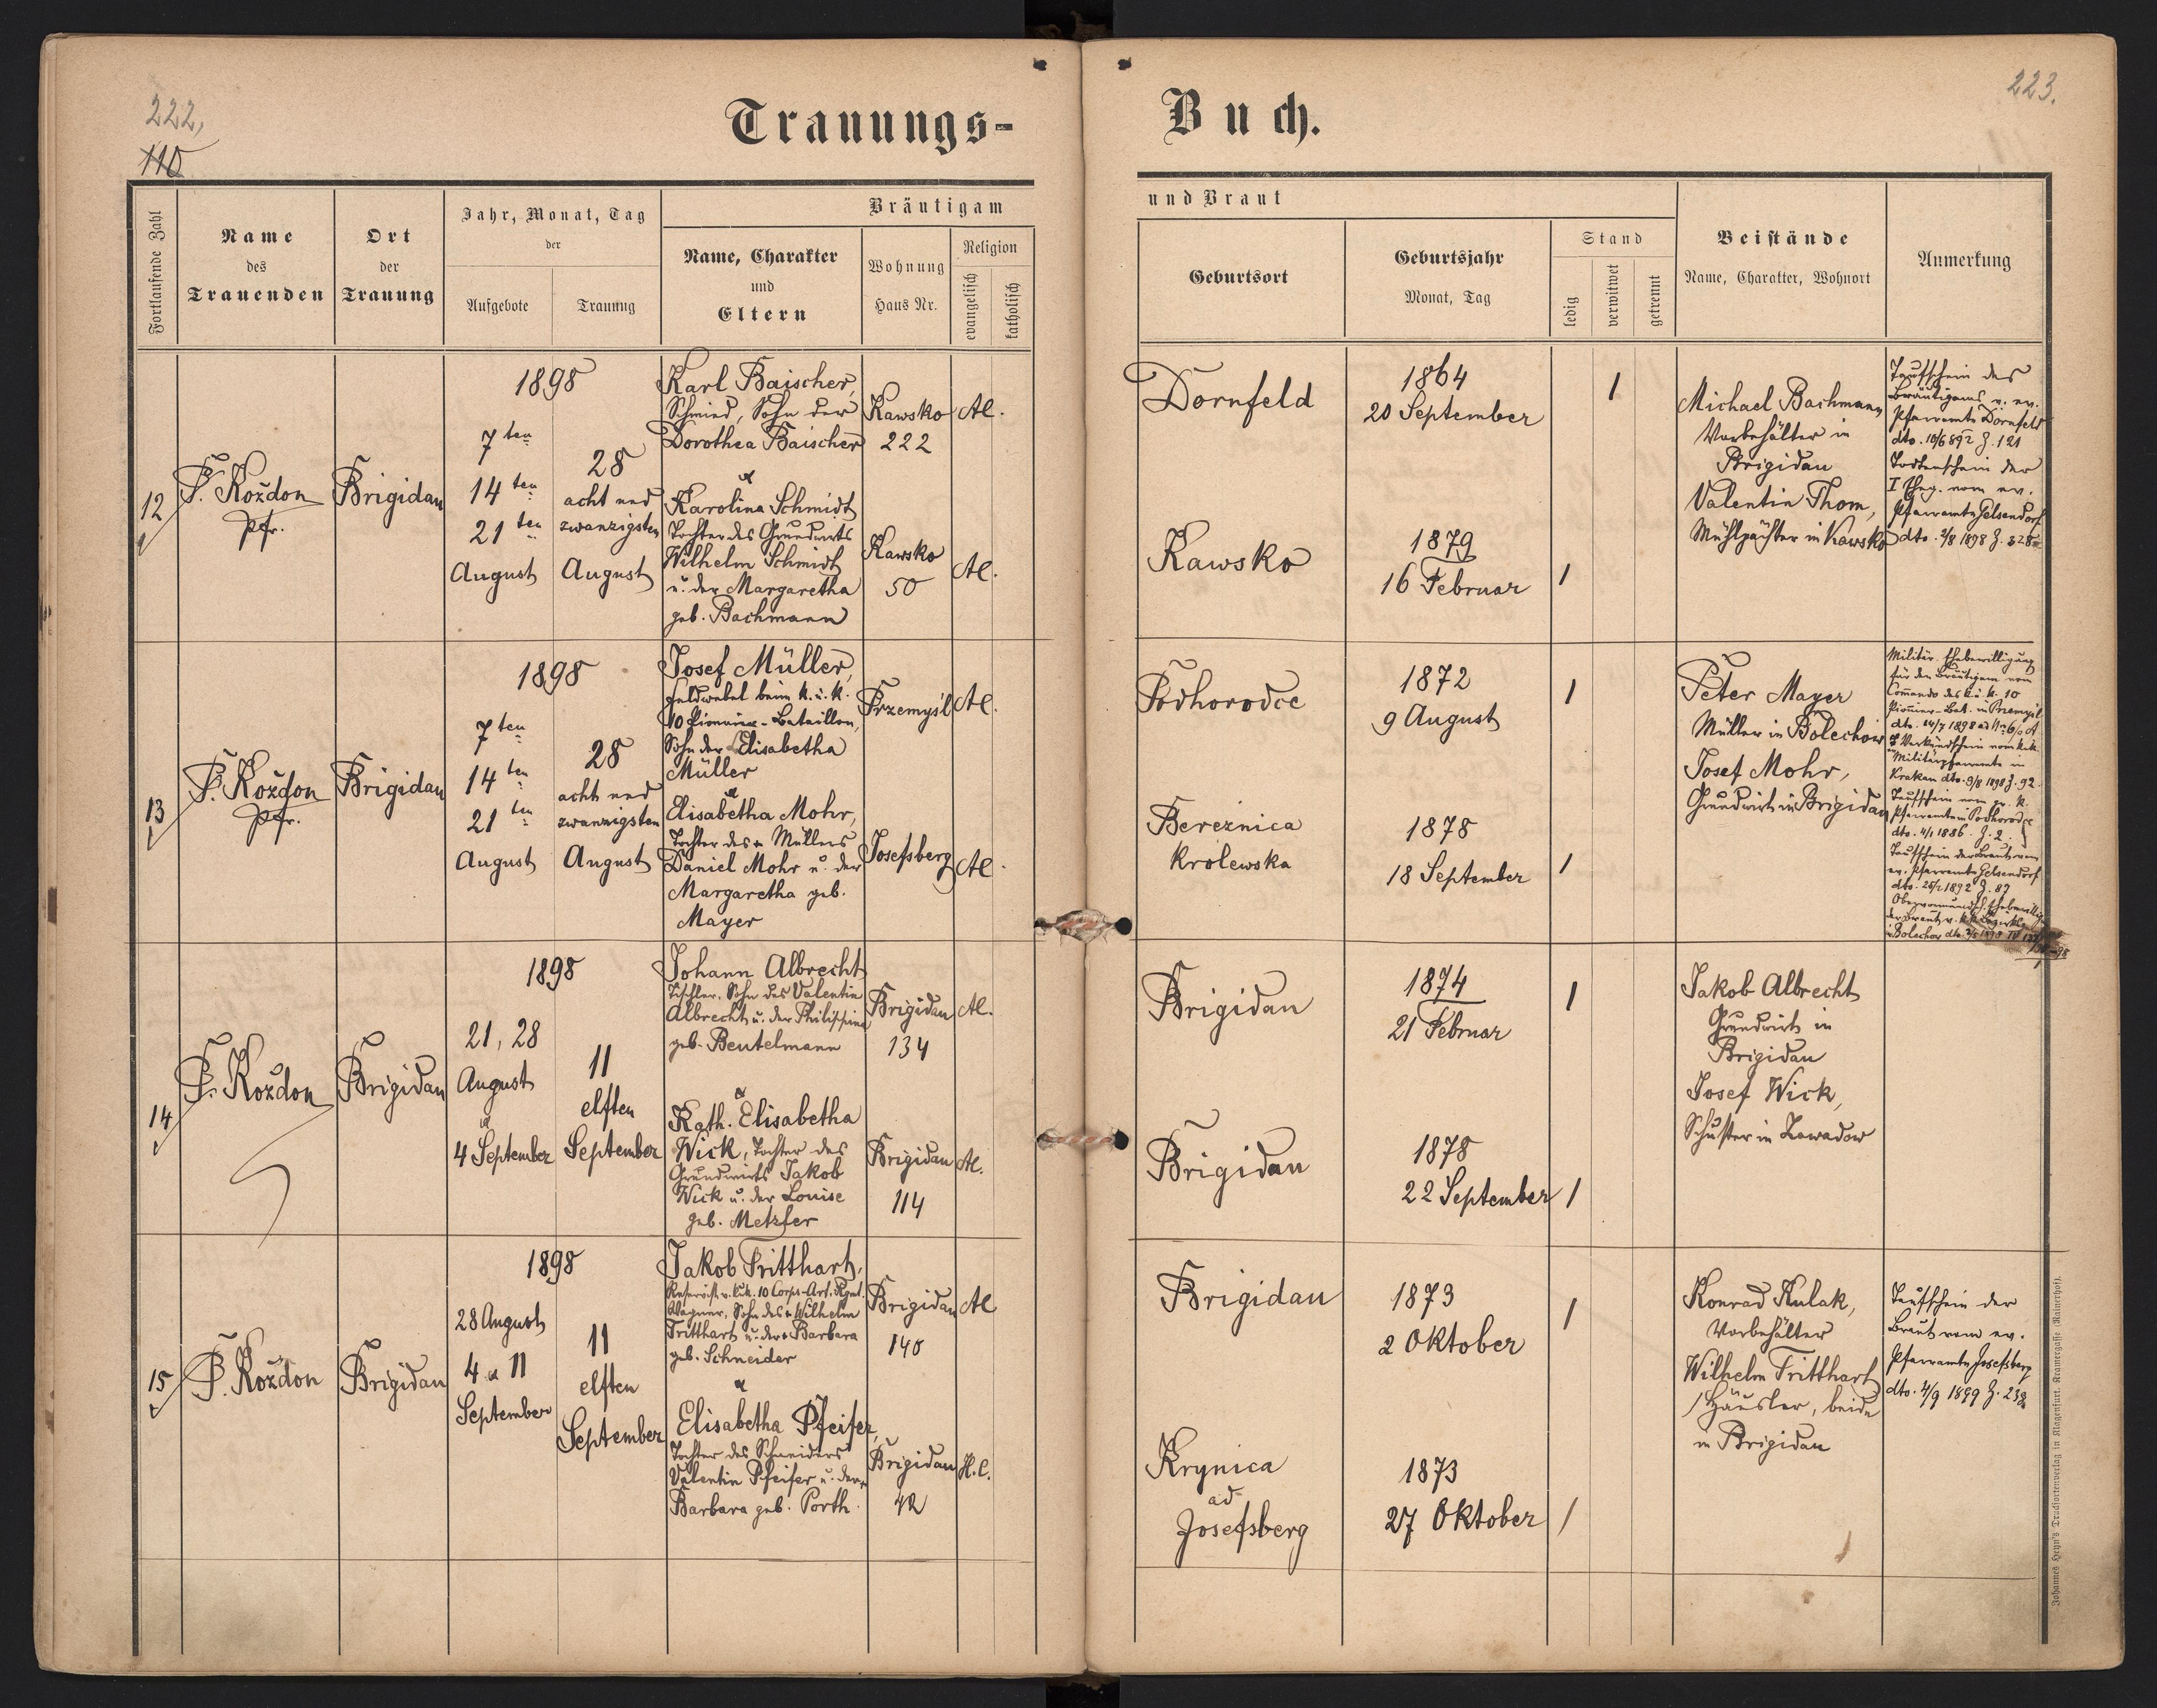 222,
110
Trauungs-
Fortlaufende Zahl
Name
des
Trauenden
Ort
der
Trauung
Jahr, Monat, Tag
der
Aufgebote
Trauung
Bräutigam
Name, Charakter
und
Eltern
Wohnung
Haus Nr.
Religion
evangelisch
katholisch
12
F. Koždon
Pfr.
Brigidau
1898
7ten
14ten
21ten
August
28
acht und
zwanzigsten
August
Karl Baischer,
Schmied, Sohn der
Dorothea Baischer
&
Karolina Schmidt
Tochter des Grundwirts
Wilhelm Schmidt
u. der Margaretha
geb. Bachmann
Kawsko
222
Kawsko
50
AC.
AC.
13
F. Koždon
Pfr.
Brigidau
1898
7ten
14ten
21ten
August
28
acht und
zwanzigsten
August
Josef Müller,
Feldwebel beim k. u. k.
10 Pionnier-Bataillon,
Sohn der Elisabetha
Müller
&
Elisabetha Mohr,
Tochter des Müllers
Daniel Mohr u. der
Margaretha geb.
Mayer
Przemyśl
Josefsberg
AC.
AC.
14
F. Koždon
Brigidau
1898
21, 28
August
&
4 September
11
elften
September
Johann Albrecht
Tischler, Sohn des Valentin
Albrecht u. der Philippina
geb. Beutelmann
&
Kath. Elisabetha
Wick, Tochter des
Grundwirts Jakob
Wick u. der Louise
geb. Metzler
Brigidau
134
Brigidau
114
AC.
AC.
15
F. Koždon
Brigidau
1898
28 August
4 & 11
September
11
elften
September
Jakob Tritthart,
Reservist v. k.u.k. 10 Corps-Art. Rgmt.
Wagner, Sohn des Wilhelm
Tritthart u. der Barbara
geb. Schneider
&
Elisabetha Pfeifer,
Tochter des Schneiders
Valentin Pfeifer u. der
Barbara geb. Porth.
Brigidau
140
Brigidau
42
AC
H.C.
223.
Buch.
und Braut
Geburtsort
Geburtsjahr
Monat, Tag
Stand
ledig
verwitwet
getrennt
Beistände
Name, Charakter, Wohnort
Anmerkung
Dornfeld
1864
20 September
1
Kawsko
1879
16 Februar
1
Michael Bachmann
Vorbehälter in
Brigidau
Valentin Thom,
Mühlpächter in Kawsko
Taufschein des
Bräutigams v. ev.
Pfarramte Dornfeld
dto. 10/6 892 Z. 121
Todtenschein der
I Ehg. vom ev.
Pfarramte Gelsendorf
dto. 2/8 1898 Z. 328
Podhorodce
1872
9 August
1
Bereznica
Krolewska
1878
18 September
1
Peter Mayer
Müller in Bolechow
Josef Mohr,
Grundwirt in Brigidau
Militär Ehebewilligung
für den Bräutigam vom
Commando des k. u. k. 10
Pionnier-Bat. in Przemyśl
Verkündschein vom k. u. k.
Militärpfarramte in
Krakau dto. 9/8 1898 Z. 92.
Taufschein vom gr. k.
Pfarramte in Podhorodce
dto. 4/1 1886. Z. 2.
Taufschein der Braut vom
ev. Pfarramte Gelsendorf
1892 Z. 87
Brigidau
1874
21 Februar
1
Brigidau
1878
22 September
1
Jakob Albrecht
Grundwirt in
Brigidau
Josef Wick,
Schuster in Zawadow
Brigidau
1873
2 Oktober
1
Krynica
ad
Josefsberg
1873
27 Oktober
1
Konrad Kulak,
Vorbehälter
Wilhelm Tritthart
Häusler, beide
in Brigidau
Taufschein der
Braut vom ev.
Pfarramte Josefsberg
dto. 4/9 1899 Z. 238
Johannes Heyn's Drucksortenverlag in Klagenfurt. Kramergasse (Rainerhof).